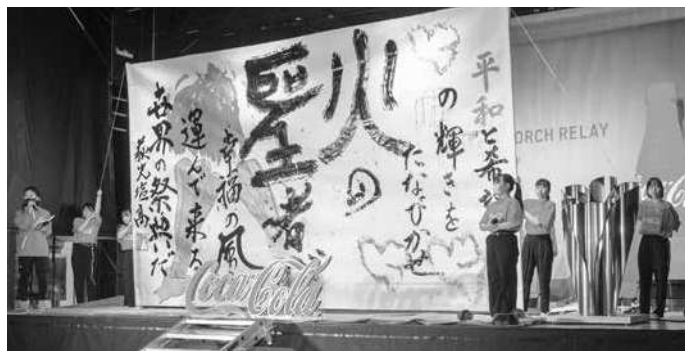 平和と希
の輝きを
たなびかせ
火の
聖者
幸福の風
運んで来る
世界の祭典だ
萩光塩高
ORCH RELAY
Coca-Cola